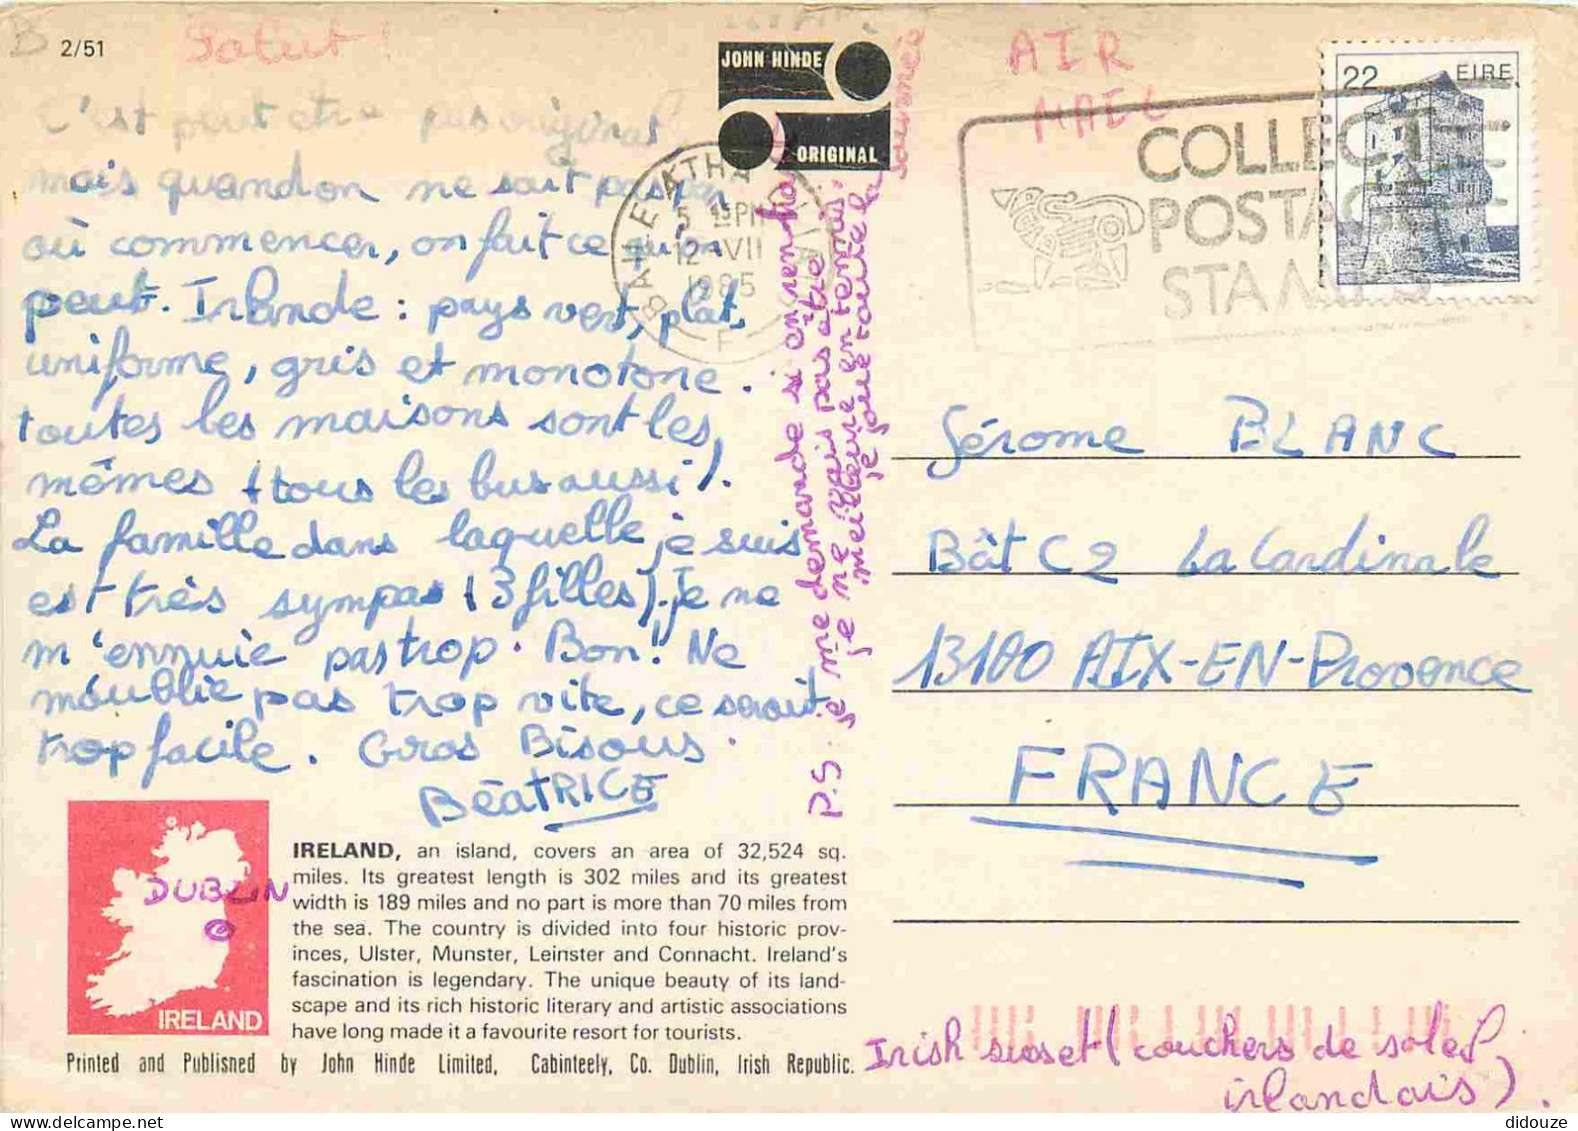 2/51
Salut !
C'est peut etre pas original
mais quand on ne sait pas par
où commencer, on fait ce qu'on
peut. Irlande : pays vert, plat,
uniforme, gris et monotone.
toutes les maisons sont les
mêmes (tous les bus aussi).
La famille dans laquelle je suis
est très sympas (3 filles). Je ne
m'ennuie pas trop. Bon! Ne
m'oublie pas trop vite, ce serait
trop facile. Gros Bisous.
BéatRICE
P.S. je me demande si en rentrant
je ne vais pas être
meilleure en tennis,
je joue toute la
journée
JOHN HINDE
ORIGINAL
AIR
MAIL
BAILE ATHA CLIATH
5 15 PM
12 VII
1985
F
COLLECT
POSTAGE
STAMPS
22 EIRE
Jérome BLANC
Bât C2 La Cardinale
13100 AIX-EN-Provence
FRANCE
DUBLIN
IRELAND
IRELAND, an island, covers an area of 32,524 sq.
miles. Its greatest length is 302 miles and its greatest
width is 189 miles and no part is more than 70 miles from
the sea. The country is divided into four historic prov-
inces, Ulster, Munster, Leinster and Connacht. Ireland's
fascination is legendary. The unique beauty of its land-
scape and its rich historic literary and artistic associations
have long made it a favourite resort for tourists.
Printed and Published by John Hinde Limited, Cabinteely, Co. Dublin, Irish Republic.
Irish sunset (couchers de soleil
irlandais).
didouze